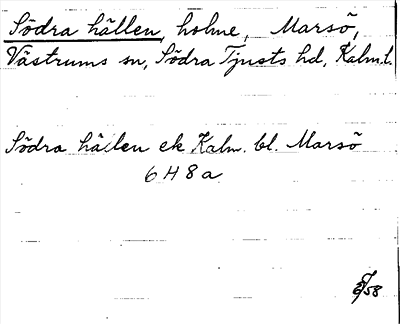 Södra hällen, holme, Marsö,
Västrums sn, Södra Tjusts hd, Kalm. l.
Södra hällen ek Kalm. bl. Marsö
6 H 8 a
58